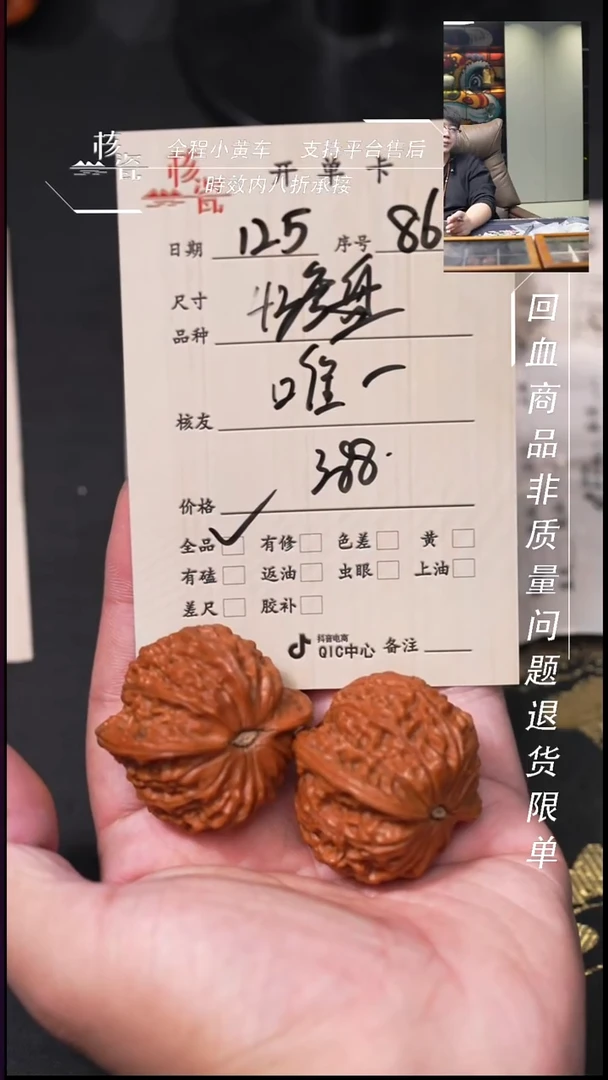 核瓷
全程小黄车 支持平台售后
時效内八折承接
核瓷
开单卡
日期 125 序号 86
尺寸 42
品种
唯一
核友
388.
价格
全品 有修 色差 黄
有磕 返油 虫眼 上油
差尺 胶补
抖音电商
QIC中心 备注
回血商品非质量问题退货限单